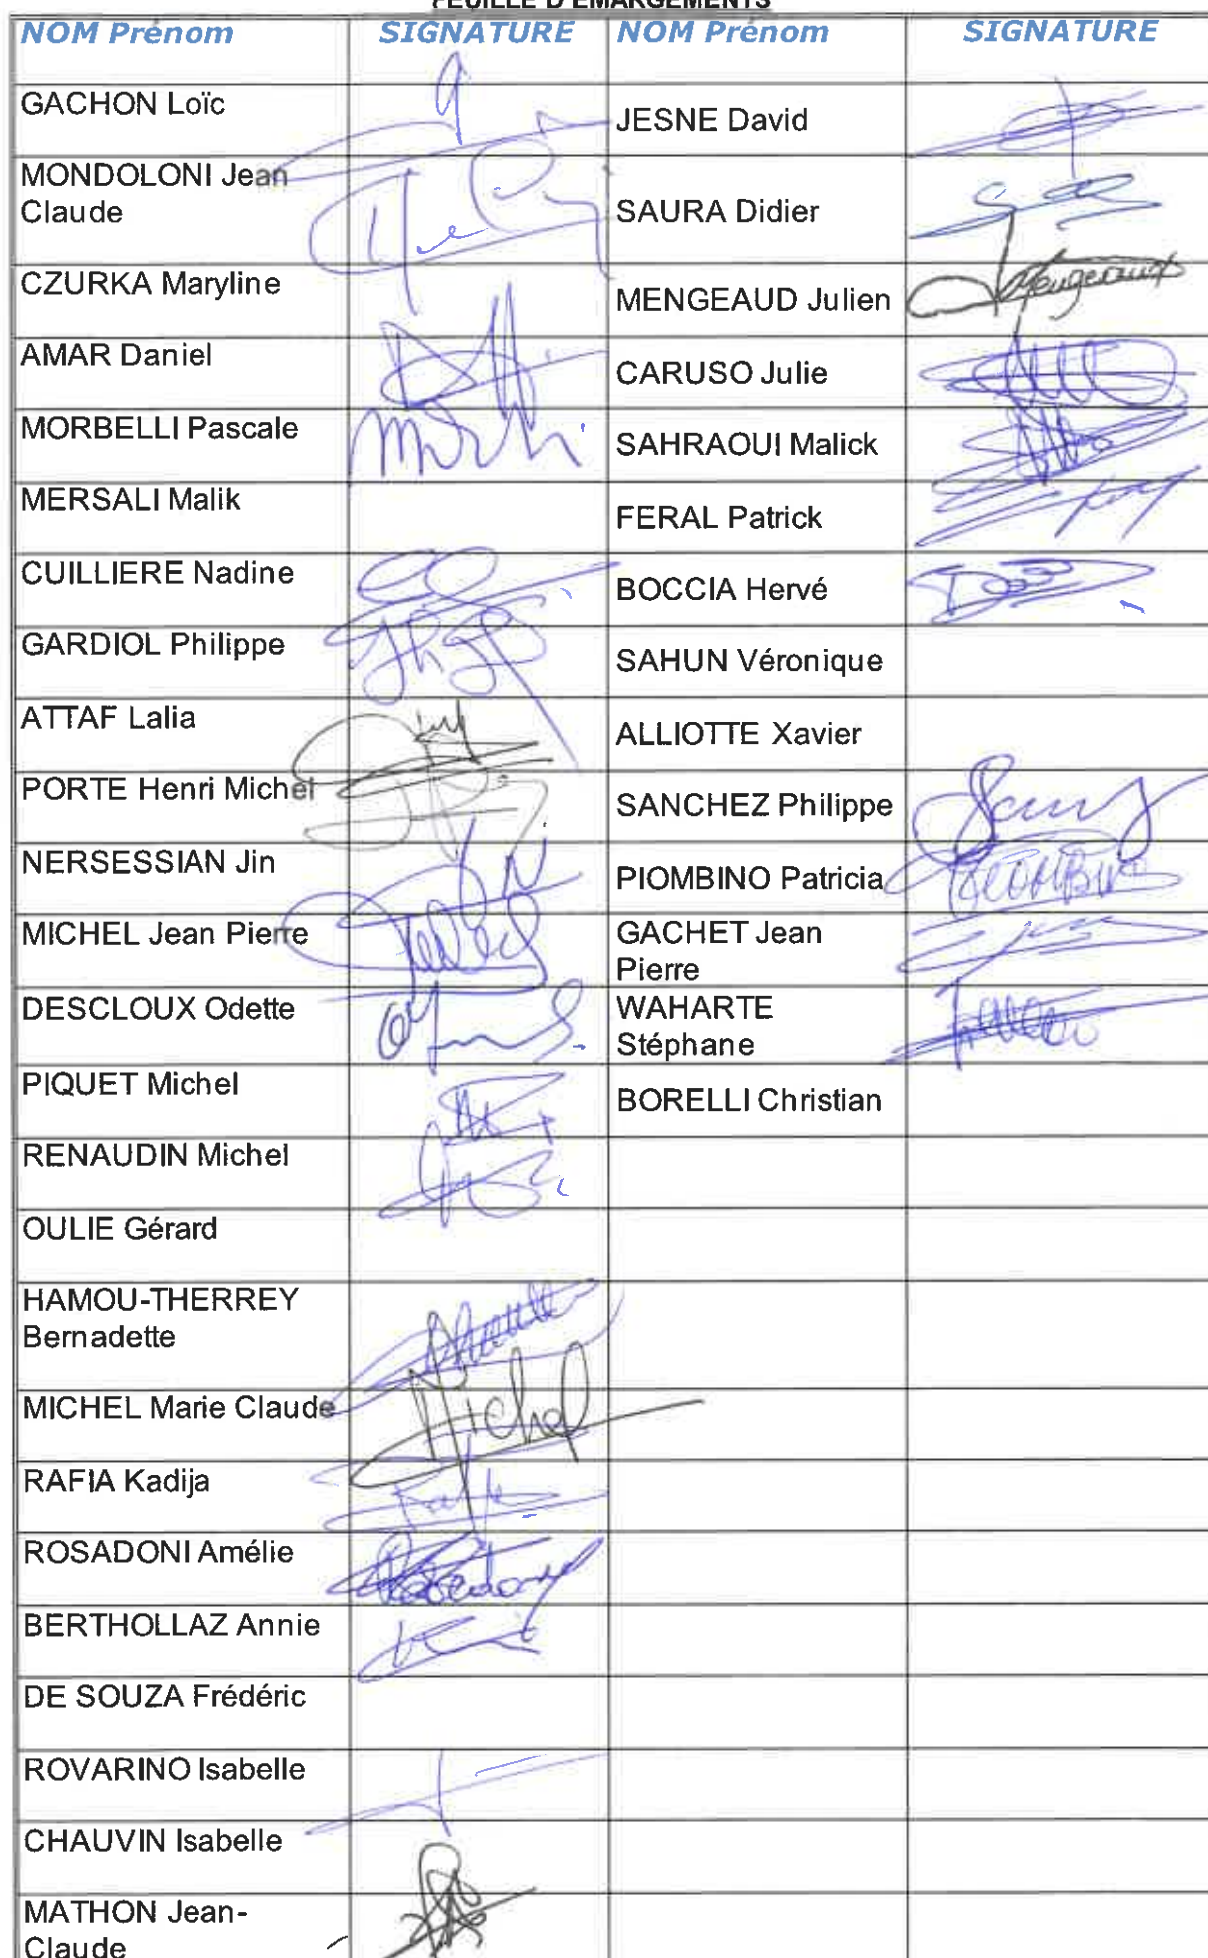 FEUILLE D'EMARGEMENTS
NOM Prénom SIGNATURE NOM Prénom SIGNATURE
GACHON Loïc JESNE David
MONDOLONI Jean
Claude SAURA Didier
CZURKA Maryline MENGEAUD Julien Mengeaud
AMAR Daniel CARUSO Julie
MORBELLI Pascale SAHRAOUI Malick
MERSALI Malik FERAL Patrick
CUILLIERE Nadine BOCCIA Hervé
GARDIOL Philippe SAHUN Véronique
ATTAF Lalia ALLIOTTE Xavier
PORTE Henri Michel SANCHEZ Philippe
NERSESSIAN Jin PIOMBINO Patricia
MICHEL Jean Pierre GACHET Jean
Pierre
DESCLOUX Odette WAHARTE
Stéphane
PIQUET Michel BORELLI Christian
RENAUDIN Michel
OULIE Gérard
HAMOU-THERREY
Bernadette
MICHEL Marie Claude Michel
RAFIA Kadija
ROSADONI Amélie
BERTHOLLAZ Annie
DE SOUZA Frédéric
ROVARINO Isabelle
CHAUVIN Isabelle
MATHON Jean-
Claude